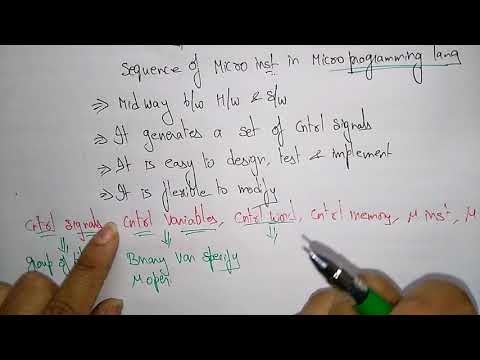 Sequence of Micro inst in Micro programming lang
⇒ Midway b/w H/w & S/w
⇒ It generates a set of Cntrl signals
⇒ It is easy to design, test & implement
⇒ It is flexible to modify
Cntrl signals, Cntrl Variables, Cntrl word, Cntrl memory, μ inst, μ
group of Binary Vari specify
μ oper.